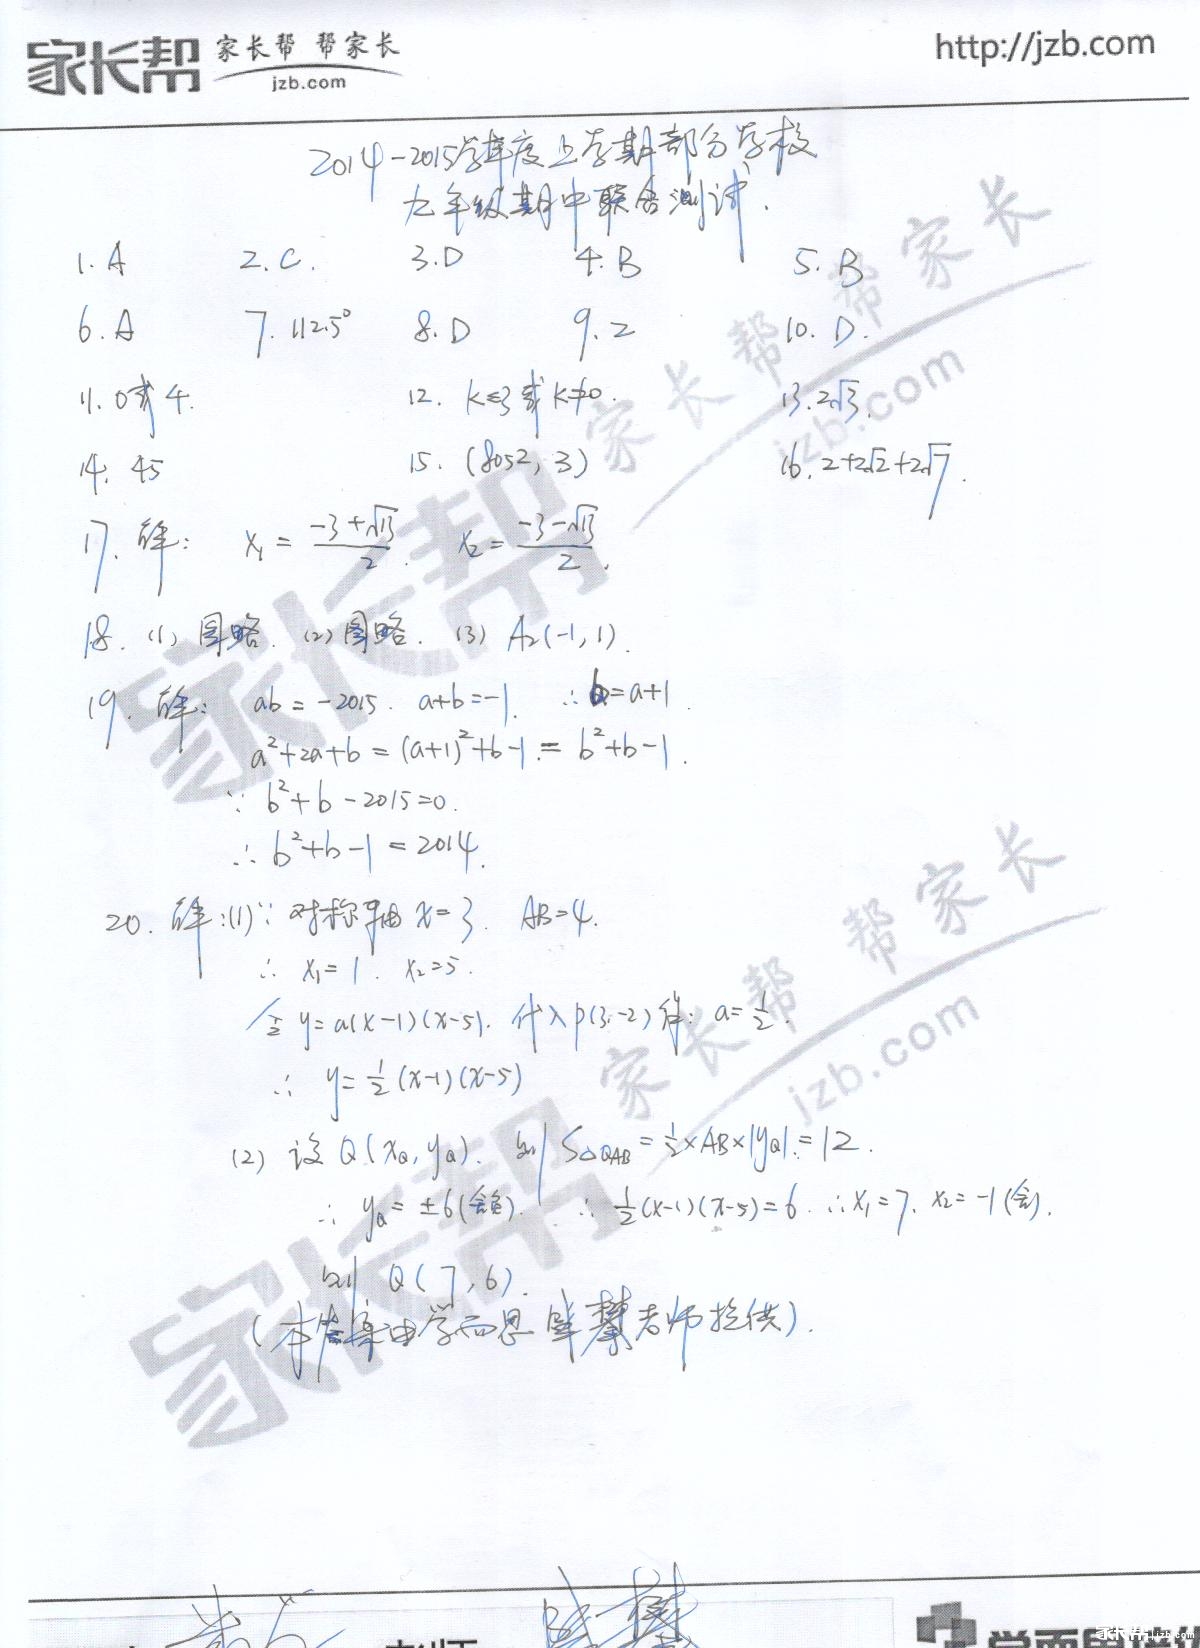 家长帮 家长帮 帮家长 jzb.com http://jzb.com
2014-2015学年度上学期部分学校
九年级期中联合测试.
1. A 2. C. 3. D 4. B 5. B
6. A 7. 112.5° 8. D 9. 2 10. D.
11. 0或4. 12. k≤3或k≠0. 13. 2√3.
14. 45 15. (8052, 3) 16. 2+2√2+2√7.
17. 解: x₁=(-3+√13)/2. x₂=(-3-√13)/2.
18. (1) 图略. (2) 图略. (3) A₂(-1, 1).
19. 解: ab=-2015. a+b=-1. ∴ b=a+1.
a²+2a+b=(a+1)²+b-1.=b²+b-1.
∵ b²+b-2015=0.
∴ b²+b-1=2014.
20. 解:(1)∵对称轴x=3. AB=4.
∴ x₁=1. x₂=5.
令y=a(x-1)(x-5). 代入P(3,-2)得: a=1/2.
∴ y=1/2(x-1)(x-5)
(2) 设Q(x_Q, y_Q). 则S△QAB=1/2×AB×|y_Q|.=12.
∴ y_Q=±6(舍负). ∴ 1/2(x-1)(x-5)=6. ∴x₁=7. x₂=-1(舍).
则 Q(7, 6).
(本答案由学而思 老师提供).
家长帮 家长帮 帮家长 jzb.com
家长帮 家长帮 帮家长 jzb.com
老师 学而思